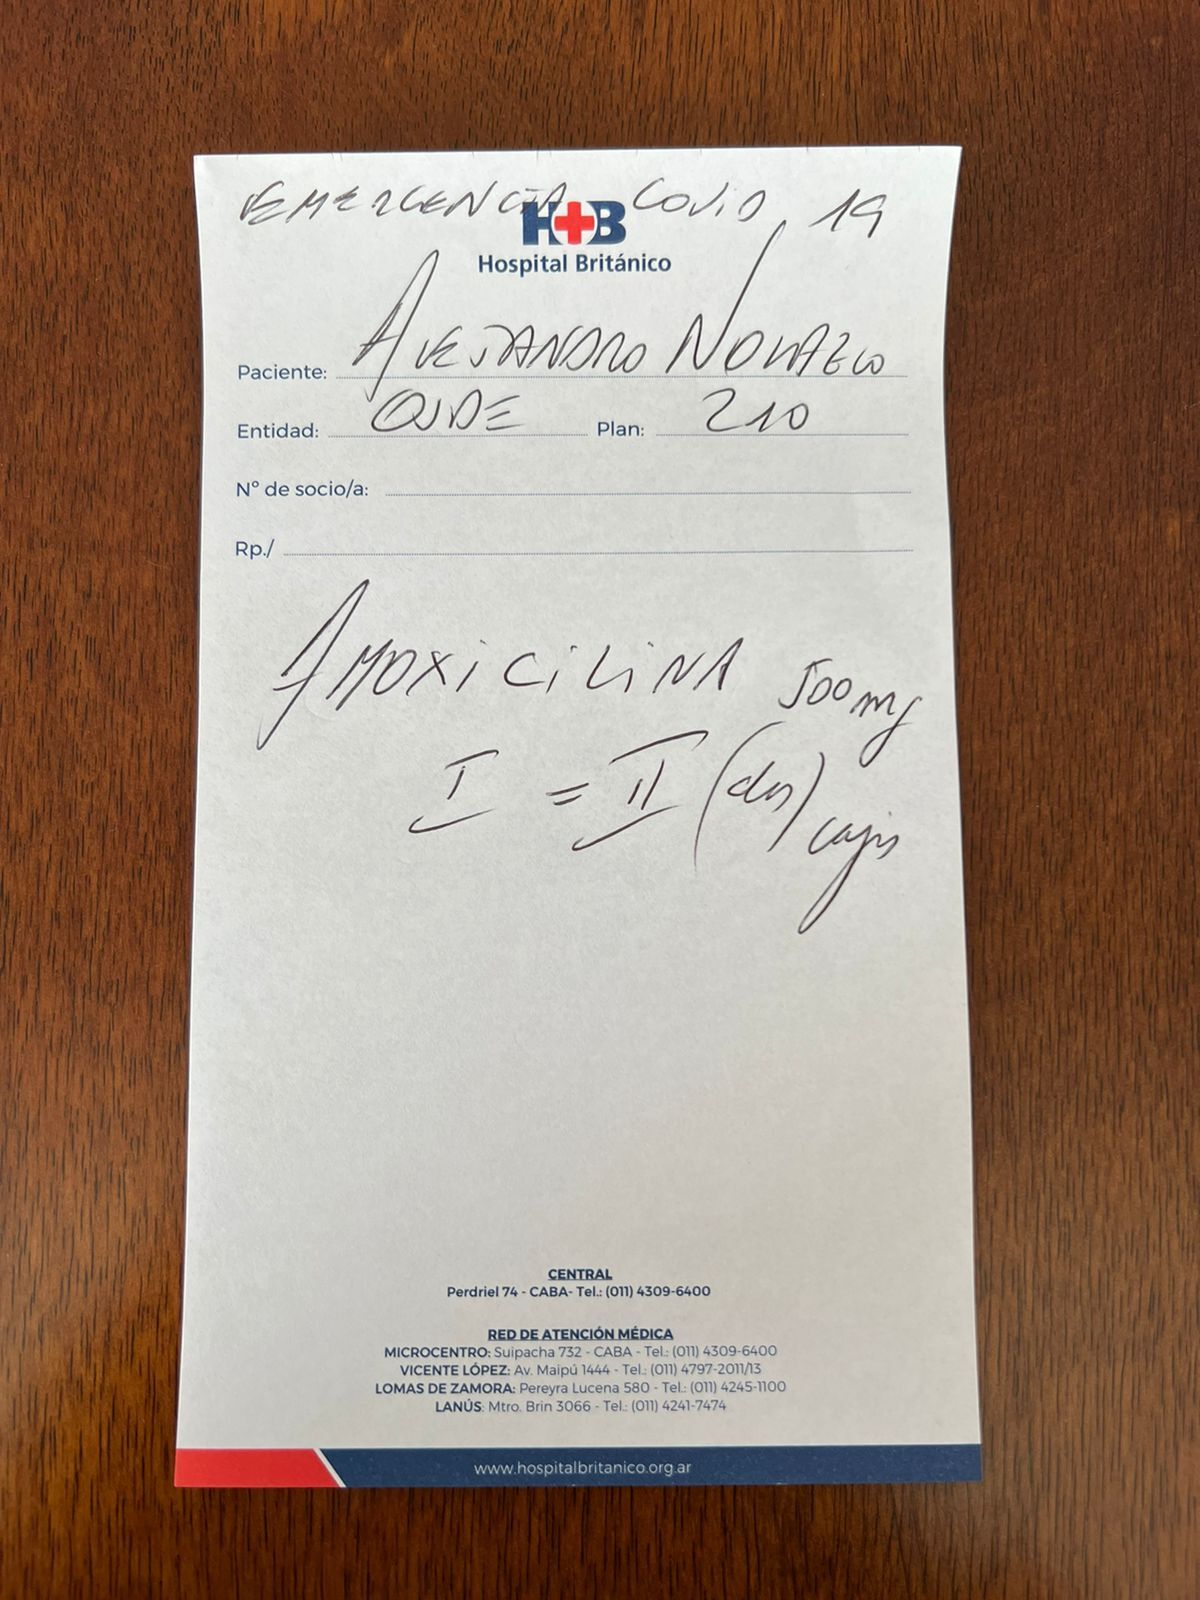 EMERGENCIA COVID 19
H+B
Hospital Británico
Paciente: ALEJANDRO
Entidad: OSDE Plan: 210
Nº de socio/a:
Rp./
AMOXICILINA 500mg
I = II (dos) cajas
CENTRAL
Perdriel 74 - CABA- Tel.: (011) 4309-6400
RED DE ATENCIÓN MÉDICA
MICROCENTRO: Suipacha 732 - CABA - Tel.: (011) 4309-6400
VICENTE LÓPEZ: Av. Maipú 1444 - Tel.: (011) 4797-2011/13
LOMAS DE ZAMORA: Pereyra Lucena 580 - Tel.: (011) 4245-1100
LANÚS: Mtro. Brin 3066 - Tel.: (011) 4241-7474
www.hospitalbritanico.org.ar